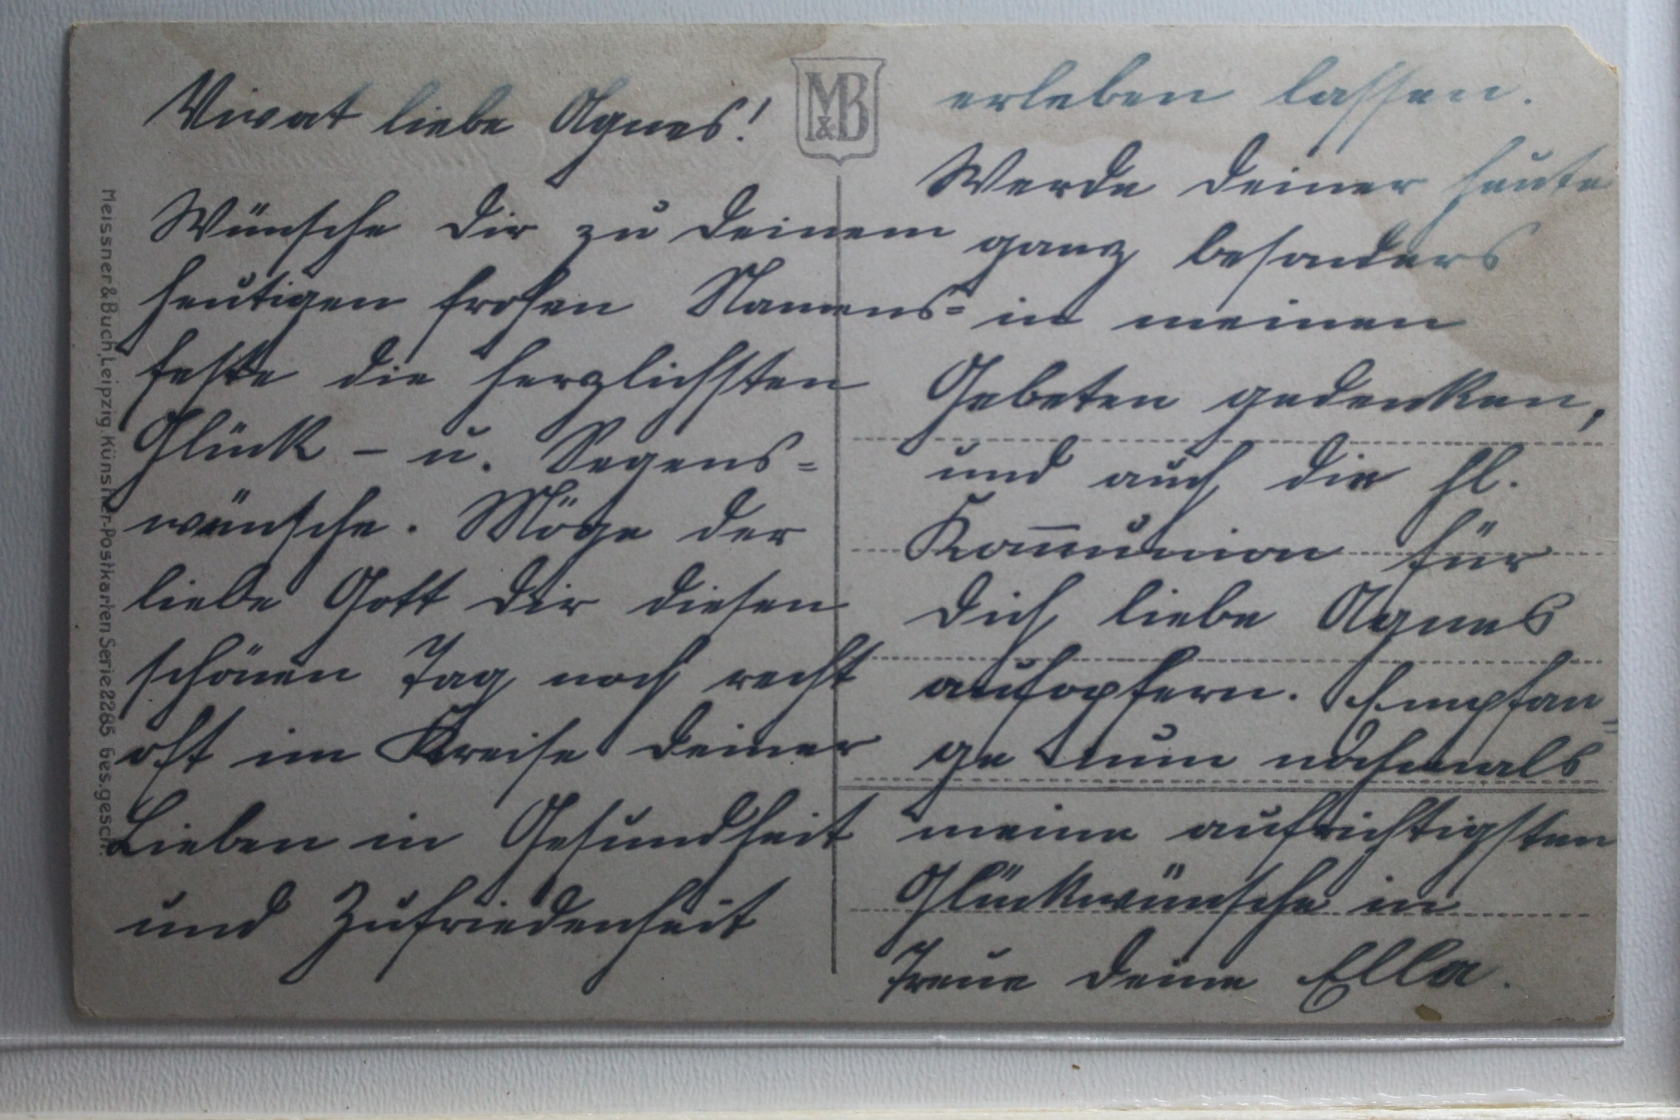 Vivat liebe Agnes!
Wünsche Dir zu Deinem
heutigen frohen Namens=
feste die herzlichsten
Glück - u. Segens=
wünsche. Möge der
liebe Gott Dir diesen
schönen Tag noch recht
oft im Kreise Deiner
Lieben in Gesundheit
und Zufriedenheit
M&B
erleben lassen.
Werde Deiner heute
ganz besonders
in meinen
Gebeten gedenken,
und auch die hl.
Kom̅union für
Dich liebe Agnes
aufopfern. Empfan=
ge nun nochmals
meine aufrichtigsten
Glückwünsche in
Treue Deine Ella.
Meissner & Buch, Leipzig. Künstler-Postkarten Serie 2285 Ges. gesch.